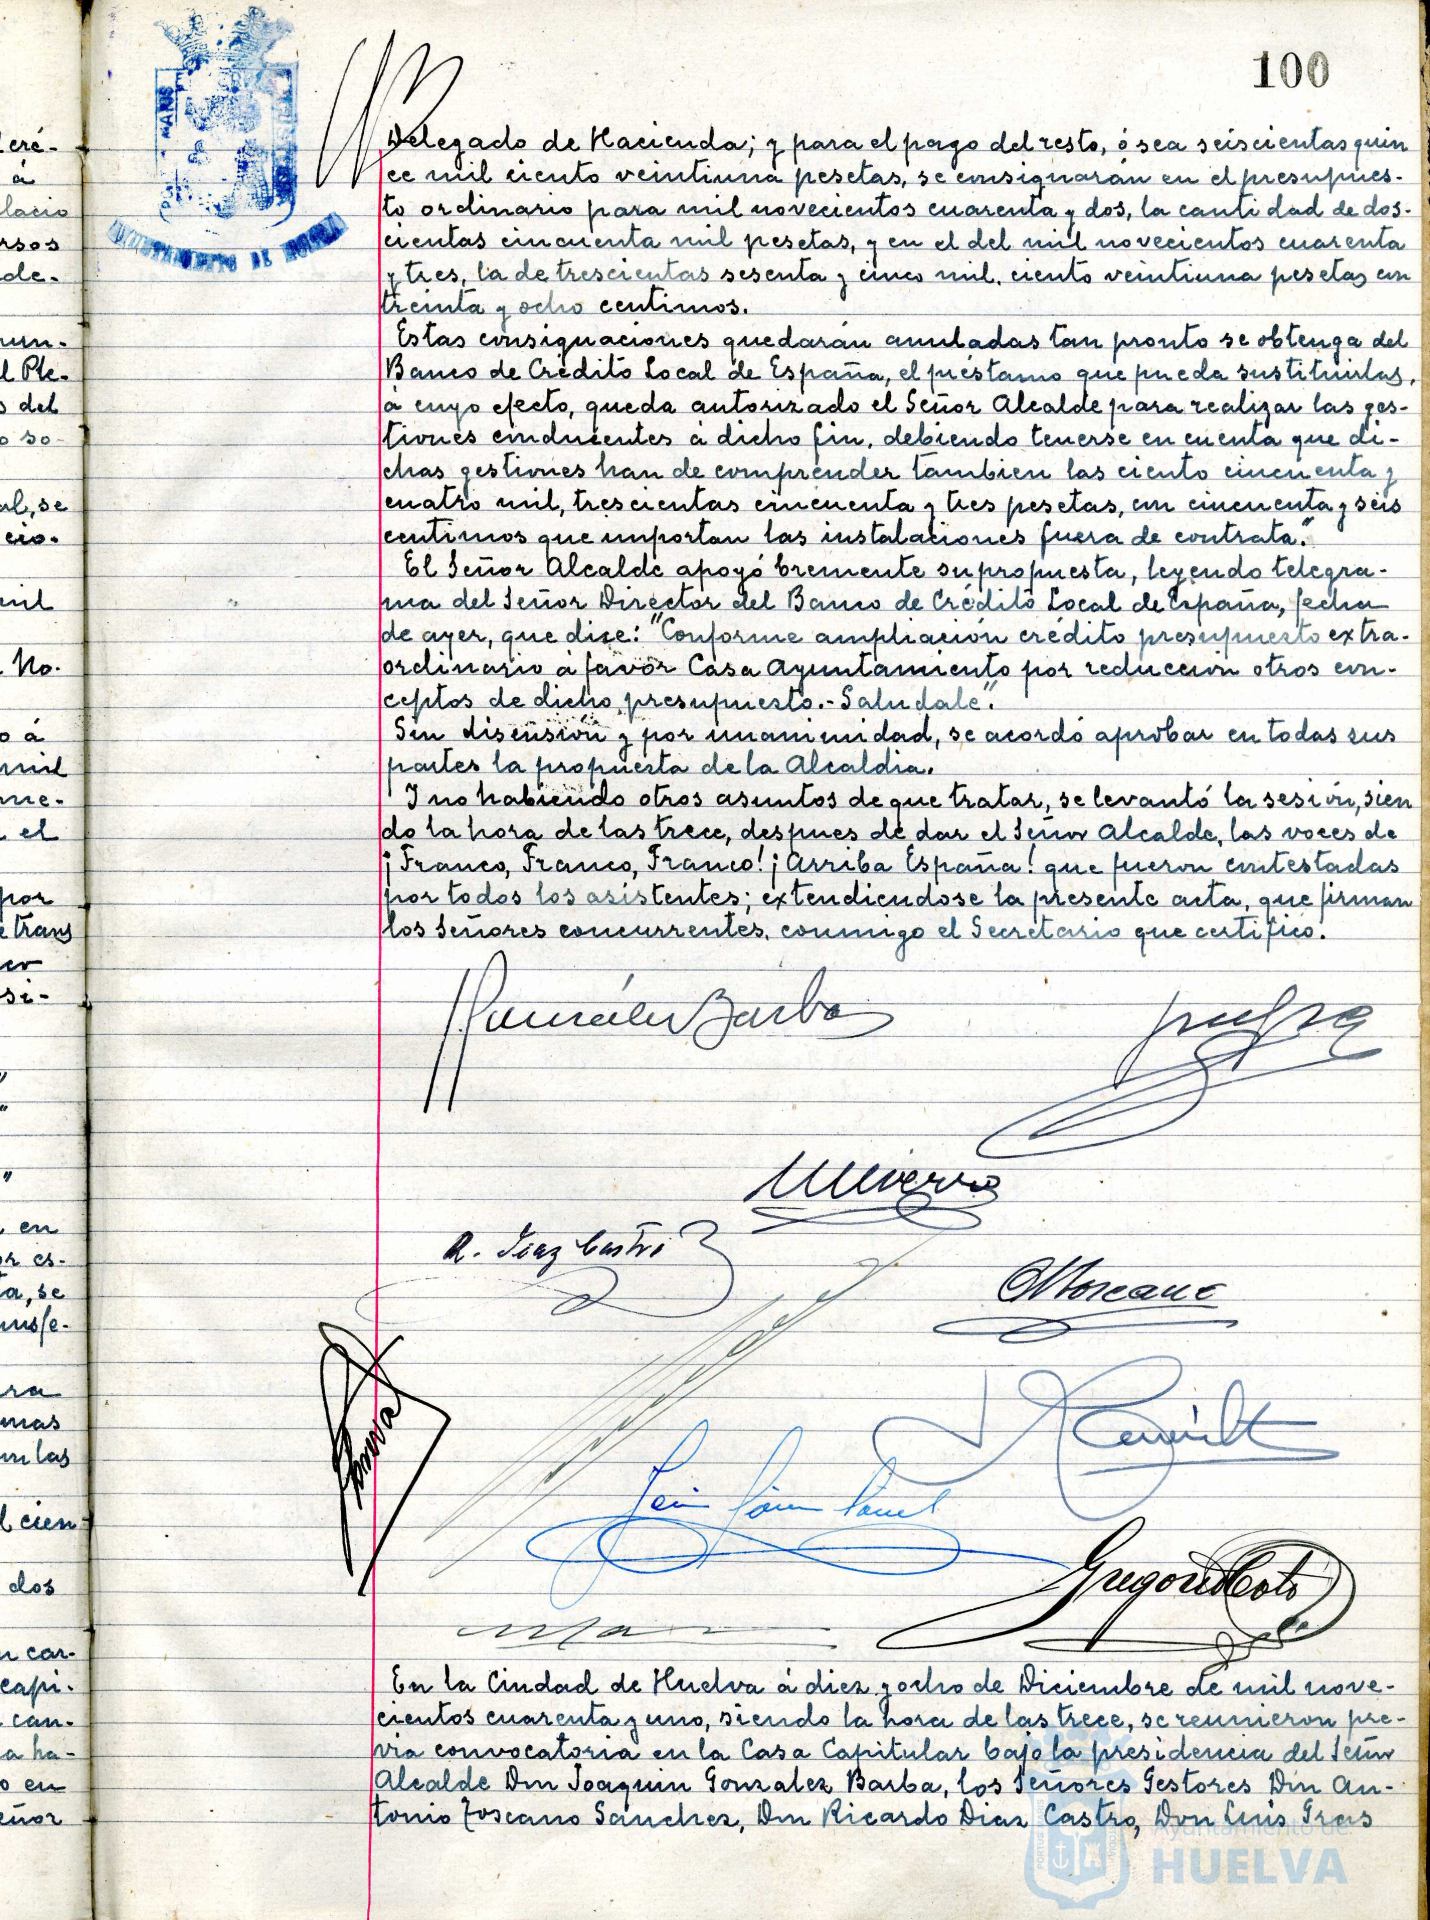 100
Delegado de Hacienda; y para el pago del resto, ó sea seiscientas quin
ce mil ciento veintiuna pesetas, se consignarán en el presupues-
to ordinario para mil novecientos cuarenta y dos, la cantidad de dos-
cientas cincuenta mil pesetas, y en el del mil novecientos cuarenta
y tres, la de trescientas sesenta y cinco mil, ciento veintiuna pesetas con
treinta y ocho centimos.
Estas consignaciones quedarán anuladas tan pronto se obtenga del
Banco de Crédito Local de España, el préstamo que pueda sustituirlas,
á cuyo efecto, queda autorizado el Señor Alcalde para realizar las ges-
tiones conducentes á dicho fin, debiendo tenerse en cuenta que di-
chas gestiones han de comprender tambien las ciento cincuenta y
cuatro mil, trescientas cincuenta y tres pesetas, con cincuenta y seis
centimos que importan las instalaciones fuera de contrata."
El Señor Alcalde apoyó bremente su propuesta, leyendo telegra-
ma del Señor Director del Banco de Crédito Local de España, fecha
de ayer, que dice: "Conforme ampliación crédito presupuesto extra-
ordinario á favor Casa Ayuntamiento por reducción otros con-
ceptos de dicho presupuesto.- Saludale".
Sin discusión y por unanimidad, se acordó aprobar en todas sus
partes la propuesta de la Alcaldia.
Y no habiendo otros asuntos de que tratar, se levantó la sesión, sien
do la hora de las trece, despues de dar el Señor Alcalde, las voces de
¡Franco, Franco, Franco! ¡Arriba España! que fueron contestadas
por todos los asistentes; extendiendose la presente acta, que firman
los Señores concurrentes, conmigo el Secretario que certifico.
González Barba
R. Diaz Castro
A Toscano
Gregorio Coto
En la Ciudad de Huelva á diez y ocho de Diciembre de mil nove-
cientos cuarenta y uno, siendo la hora de las trece, se reunieron pre-
via convocatoria en la Casa Capitular bajo la presidencia del Señor
Alcalde Don Joaquin Gonzalez Barba, los Señores Gestores Don An-
tonio Toscano Sanchez, Don Ricardo Diaz Castro, Don Luis Gras
Ayuntamiento de
HUELVA